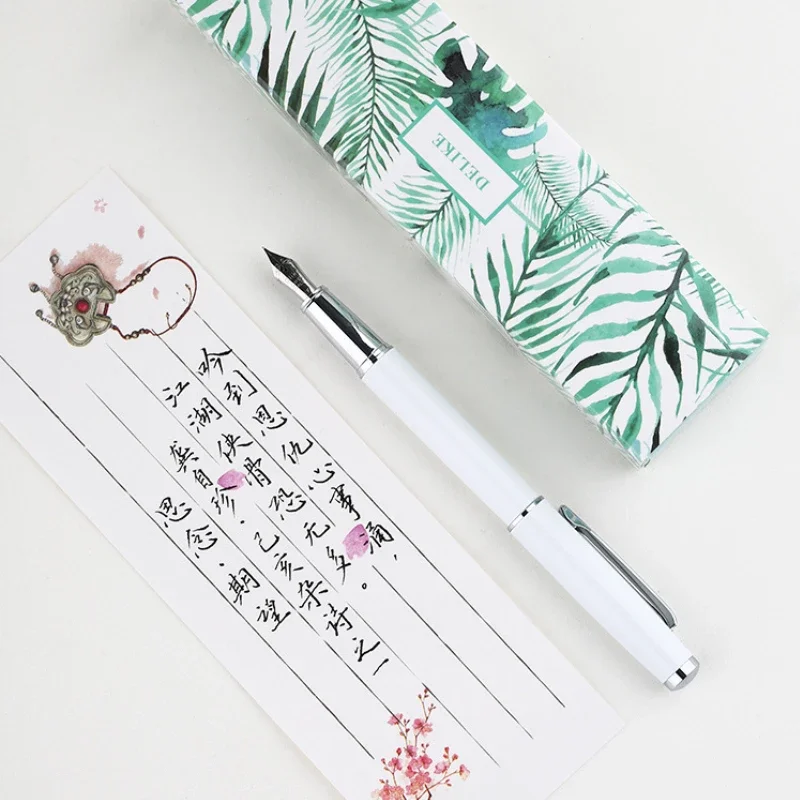 DELIKE
吟到恩仇心事涌,
江湖侠骨恐无多。
龚自珍·己亥杂诗之一
思念·期望